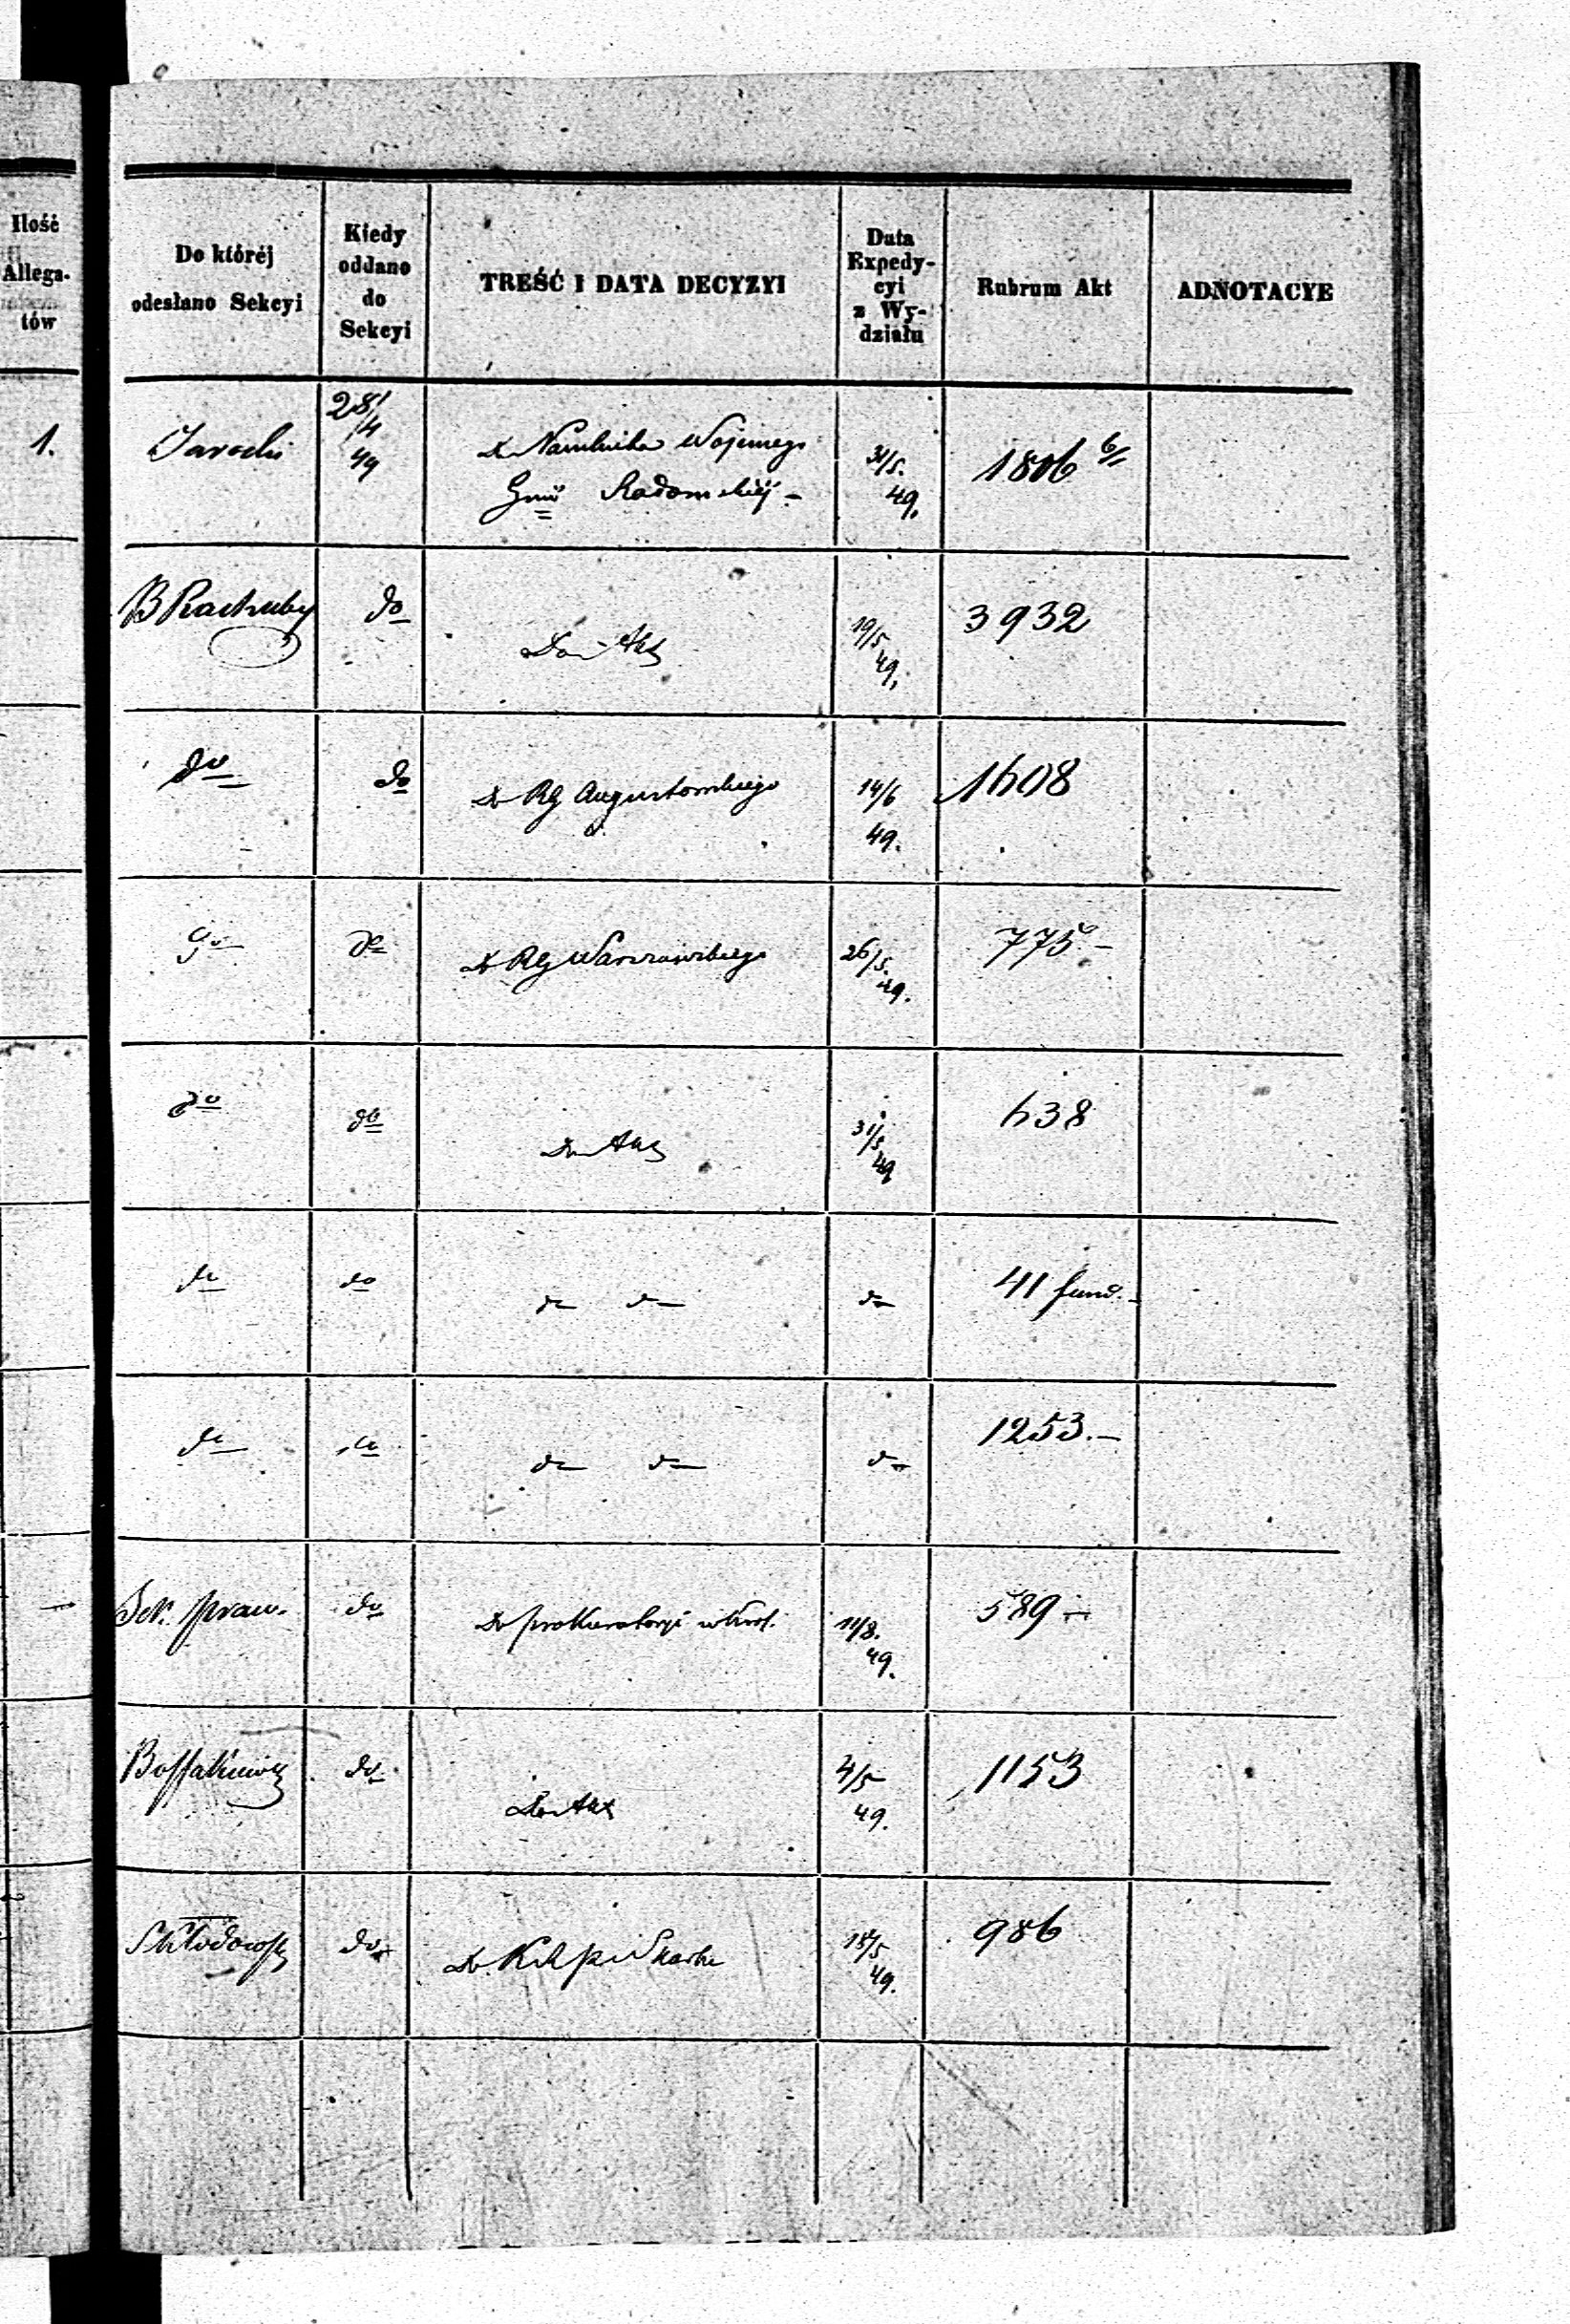 Ilość
Allega-
tów
Do któréj
odesłano Sekcyi
Kiedy
oddano
do
Sekcyi
TREŚĆ I DATA DECYZYI
Data
Expedy-
cyi
z Wy-
działu
Rubrum Akt
ADNOTACYE
1.
28/4
49
Do Naczelnika Wojennego
Gnii Radomskiéj -
31/5.
49.
1806 b/
B Rachuby
do
Do Akt
19/5
49.
3932
do
do
Do RG Augustowskiego
14/6
49.
1608
do
do
Do RG Warszawskiego
26/5.
49.
775.-
do
do
Do Akt
31/5
49
638
do
do
do do
do
41 fund.-
do
do
do do
do
1253.-
Sek. praw.
do
Do prokuratoryi w Król.
11/8.
49.
589-
do
Do Akt
4/5
49.
1153
Skłodowsk
do
Do Skarbu
15/5
49.
986